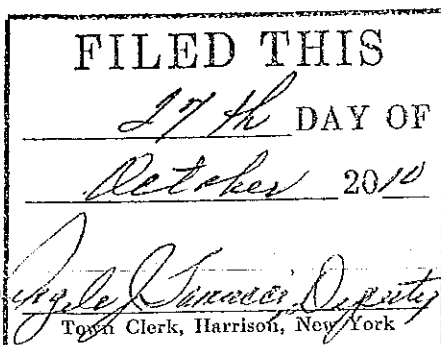 FILED THIS
27th DAY OF
October 2010
Deputy
Town Clerk, Harrison, New York